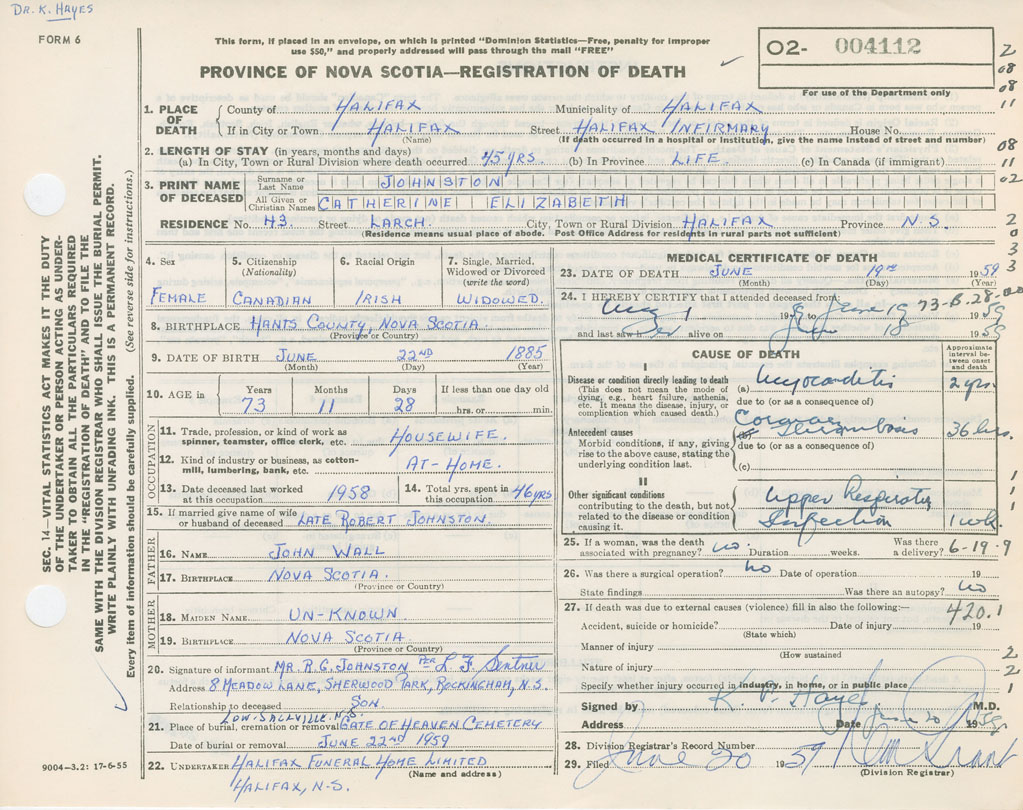 DR. K. HAYES
FORM 6
This form, if placed in an envelope, on which is printed "Dominion Statistics—Free, penalty for improper
use $50," and properly addressed will pass through the mail "FREE"
PROVINCE OF NOVA SCOTIA—REGISTRATION OF DEATH
O2- 004112
For use of the Department only
2
08
08
11
08
11
02
2
0
3
3
SEC. 14—VITAL STATISTICS ACT MAKES IT THE DUTY
OF THE UNDERTAKER OR PERSON ACTING AS UNDER-
TAKER TO OBTAIN ALL THE PARTICULARS REQUIRED
IN THE "REGISTRATION OF DEATH" AND TO FILE THE
SAME WITH THE DIVISION REGISTRAR WHO SHALL ISSUE THE BURIAL PERMIT.
WRITE PLAINLY WITH UNFADING INK. THIS IS A PERMANENT RECORD.
Every item of information should be carefully supplied. (See reverse side for instructions.)
1. PLACE OF DEATH County of HALIFAX Municipality of HALIFAX
If in City or Town HALIFAX Street HALIFAX INFIRMARY House No.
(Name) (If death occurred in a hospital or institution, give the name instead of street and number)
2. LENGTH OF STAY (in years, months and days)
(a) In City, Town or Rural Division where death occurred 45 YRS. (b) In Province LIFE. (c) In Canada (if immigrant)
3. PRINT NAME OF DECEASED Surname or Last Name JOHNSTON
All Given or Christian Names CATHERINE ELIZABETH
RESIDENCE No. 43 Street LARCH. City, Town or Rural Division HALIFAX Province N.S.
(Residence means usual place of abode. Post Office Address for residents in rural parts not sufficient)
4. Sex FEMALE
5. Citizenship (Nationality) CANADIAN
6. Racial Origin IRISH
7. Single, Married, Widowed or Divorced (write the word) WIDOWED.
8. BIRTHPLACE HANTS COUNTY, NOVA SCOTIA.
(Province or Country)
9. DATE OF BIRTH JUNE 22ND 1885
(Month) (Day) (Year)
10. AGE in Years 73 Months 11 Days 28 If less than one day old hrs. or min.
OCCUPATION
11. Trade, profession, or kind of work as spinner, teamster, office clerk, etc. HOUSEWIFE.
12. Kind of industry or business, as cotton-mill, lumbering, bank, etc. AT-HOME.
13. Date deceased last worked at this occupation 1958
14. Total yrs. spent in this occupation 46 YRS
15. If married give name of wife or husband of deceased LATE ROBERT JOHNSTON.
FATHER
16. NAME JOHN WALL
17. BIRTHPLACE NOVA SCOTIA.
(Province or Country)
MOTHER
18. MAIDEN NAME UN-KNOWN
19. BIRTHPLACE NOVA SCOTIA.
(Province or Country)
20. Signature of informant MR. R.G. JOHNSTON PER L F Sentner
Address 8 MEADOW LANE, SHERWOOD PARK, ROCKINGHAM, N.S.
Relationship to deceased SON.
LOW. SACKVILLE. N.S.
21. Place of burial, cremation or removal GATE OF HEAVEN CEMETERY
Date of burial or removal JUNE 22ND 1959
22. UNDERTAKER HALIFAX FUNERAL HOME LIMITED
(Name and address)
HALIFAX, N.S.
9004-3.2: 17-6-55
MEDICAL CERTIFICATE OF DEATH
23. DATE OF DEATH JUNE 19TH 1959
(Month) (Day) (Year)
24. I HEREBY CERTIFY that I attended deceased from:
May 1 1959 to June 19 1959
73-B-28-00
and last saw her alive on June 18 1959
CAUSE OF DEATH
Approximate interval between onset and death
I
Disease or condition directly leading to death (a) Myocarditis 2 yrs.
(This does not mean the mode of dying, e.g., heart failure, asthenia, etc. It means the disease, injury, or complication which caused death.)
due to (or as a consequence of)
Coronary thrombosis 36 hrs.
Antecedent causes
Morbid conditions, if any, giving rise to the above cause, stating the underlying condition last.
due to (or as a consequence of)
(c)
II
Other significant conditions contributing to the death, but not related to the disease or condition causing it.
Upper Respiratory Infection 1 wk.
1
1
1
1
25. If a woman, was the death associated with pregnancy? no. Duration weeks. Was there a delivery? 6-19-9
26. Was there a surgical operation? no Date of operation 19
State findings Was there an autopsy? no
27. If death was due to external causes (violence) fill in also the following:— 420.1
Accident, suicide or homicide? Date of injury 19
(State which)
Manner of injury 2
(How sustained
Nature of injury 2
Specify whether injury occurred in industry, in home, or in public place 1
Signed by K. P. Hayes M.D.
Address Date June 20 1959
28. Division Registrar's Record Number
29. Filed June 20 1959
(Division Registrar)